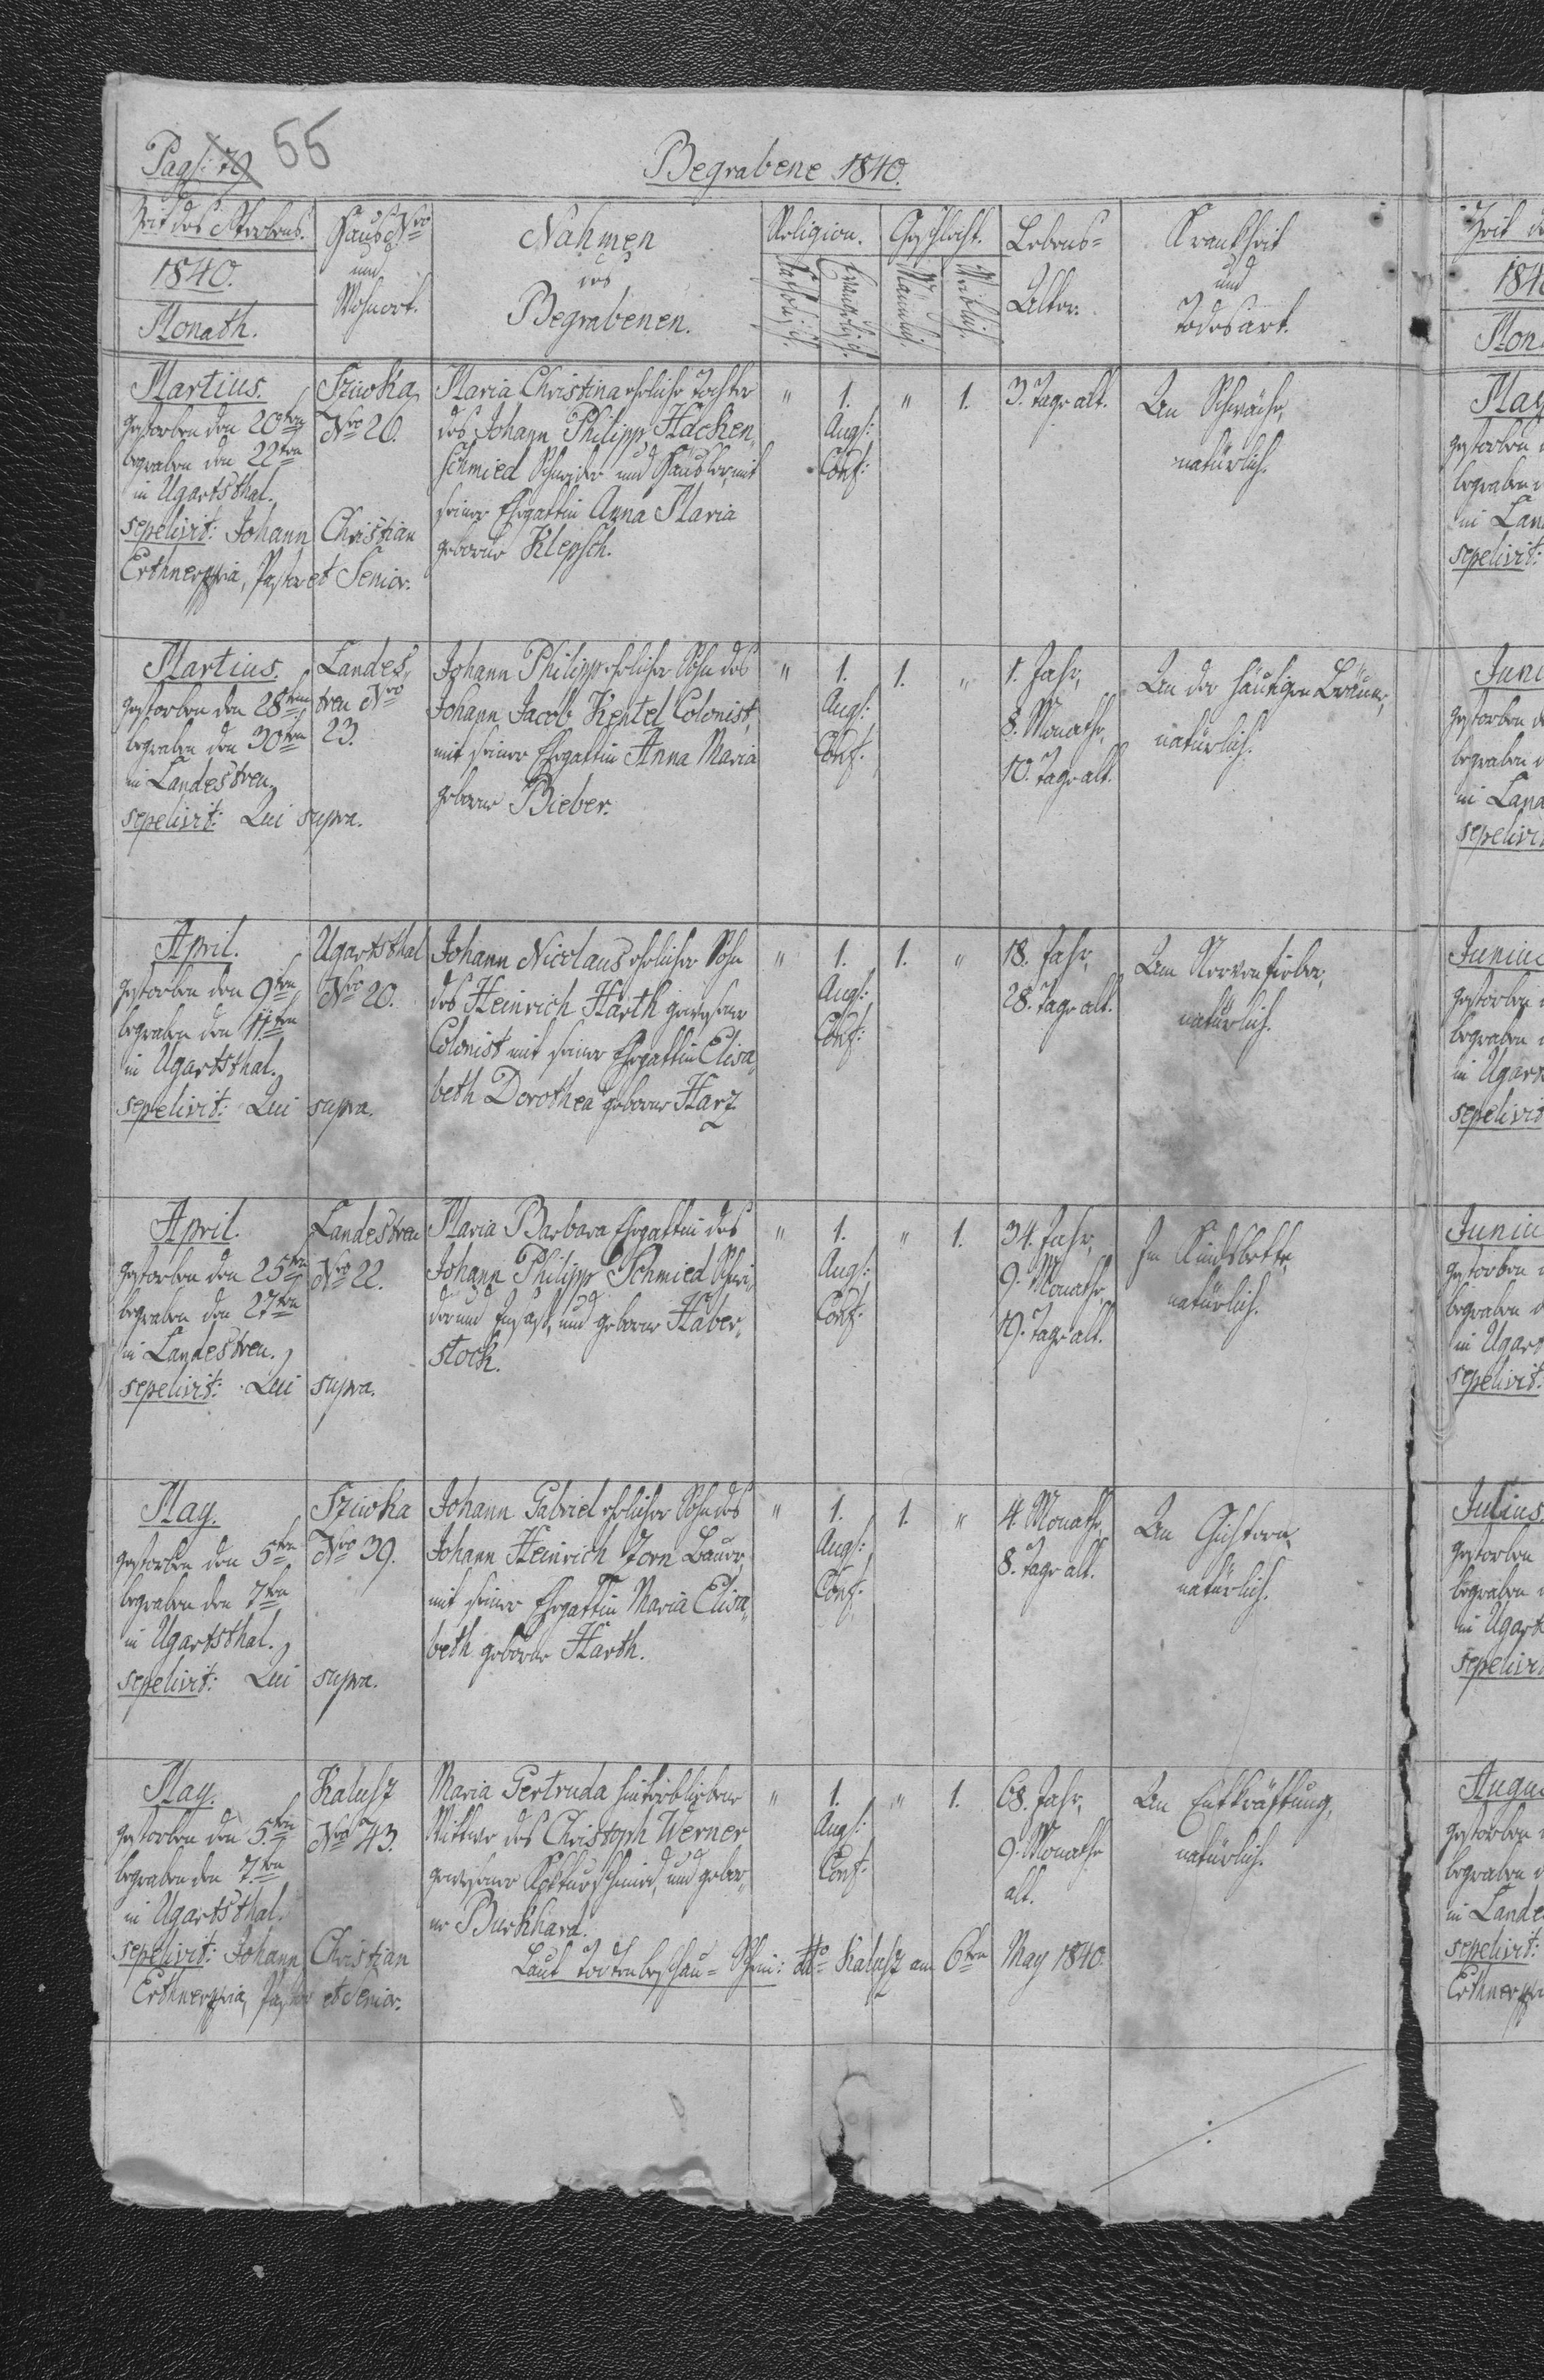 Pag: 79 55
Begrabene 1840.
Zeit des Sterbens.
1840.
Monath.
Haus Nro
und
Wohnort.
Nahmen
des
Begrabenen.
Religion.
Katholisch.
Evangelisch.
Geschlecht.
Männlich.
Weiblich.
Lebens-
Alter.
Krankheit
und
Todesart.
Martius.
gestorben den 20ten
begraben den 22ten
in Ugartsthal.
sepelivit: Johann Christian
Pastor et Senior.
Szivka
Nro 26.
Maria Christina eheliche Tochter
des Johann Philipp Hacken„
schmied Schneider und Häusler, mit
seiner Ehegattin Anna Maria
geborne Klepsch.
" 1. " 1.
Augs:
Conf:
3. Tage alt.
An Schwäche,
natürlich.
Martius.
gestorben den 28ten
begraben den 30ten
in Landestreu,
sepelivit: Qui supra.
Landes„
treu Nro
23.
Johann Philipp ehelicher Sohn des
Johann Jacob Kentel Colonist,
mit seiner Ehegattin Anna Maria
geborne Bieber.
" 1. 1. "
Augs:
Conf.
1. Jahr,
8. Monathe,
10. Tage alt.
An der häutigen Bräune,
natürlich.
April.
gestorben den 9ten
begraben den 11ten
in Ugartsthal.
sepelivit: Qui supra.
Ugartsthal
Nro 20.
Johann Nicolaus ehelicher Sohn
des Heinrich Harth gewesener
Colonist mit seiner Ehegattin Elisa„
beth Dorothea geborne Harz
" 1. 1. "
Augs:
Conf:
18. Jahr,
28. Tage alt.
Am Nervenfieber,
natürlich.
April.
gestorben den 25ten
begraben den 27ten
in Landestreu.
sepelivit: Qui supra.
Landestreu
Nro 22.
Maria Barbara Ehegattin des
Johann Philipp Schmied Schnei„
der und Insass, und geborne Haber„
stock.
" 1. " 1.
Augs:
Conf:
34. Jahr,
9. Monathe,
19. Tage alt.
Im Kindsbette,
natürlich.
May.
gestorben den 5ten
begraben den 7ten
in Ugartsthal.
sepelivit: Qui supra.
Szivka
Nro 39.
Johann Gabriel ehelicher Sohn des
Johann Heinrich Zorn Bauer,
mit seiner Ehegattin Maria Elisa„
beth geborne Harth.
" 1. 1. "
Augs:
Conf.
4. Monathe,
8. Tage alt.
natürlich.
May.
gestorben den 5ten
begraben den 7ten
in Ugartsthal.
sepelivit: Johann Christian
Pastor et Senior.
Kalusz
Nro 43.
Maria Gertruda hinterbliebene
Wittwe des Christoph Werner
gewesener Kupferschmied, und gebor„
ne Burkhard.
Laut Todtenbeschau-Schein: dto Kalusz am 6ten May 1840.
" 1. " 1.
Augs:
Conf.
68. Jahr,
9. Monathe
alt.
An Entkräftung,
natürlich.
Zeit d
1840
Mon
May
gestorben
begraben
in Lan
sepelivit:
Juni
gestorben
begraben
in Land
sepelivi
Junius
gestorben
begraben
in Ugart
sepelivit
Juniu
gestorben
begraben
in Ugart
sepelivit:
Julius.
gestorben
begraben
in Ugart
sepelivi
Augu
gestorben
begraben
in Lande
sepelivit: